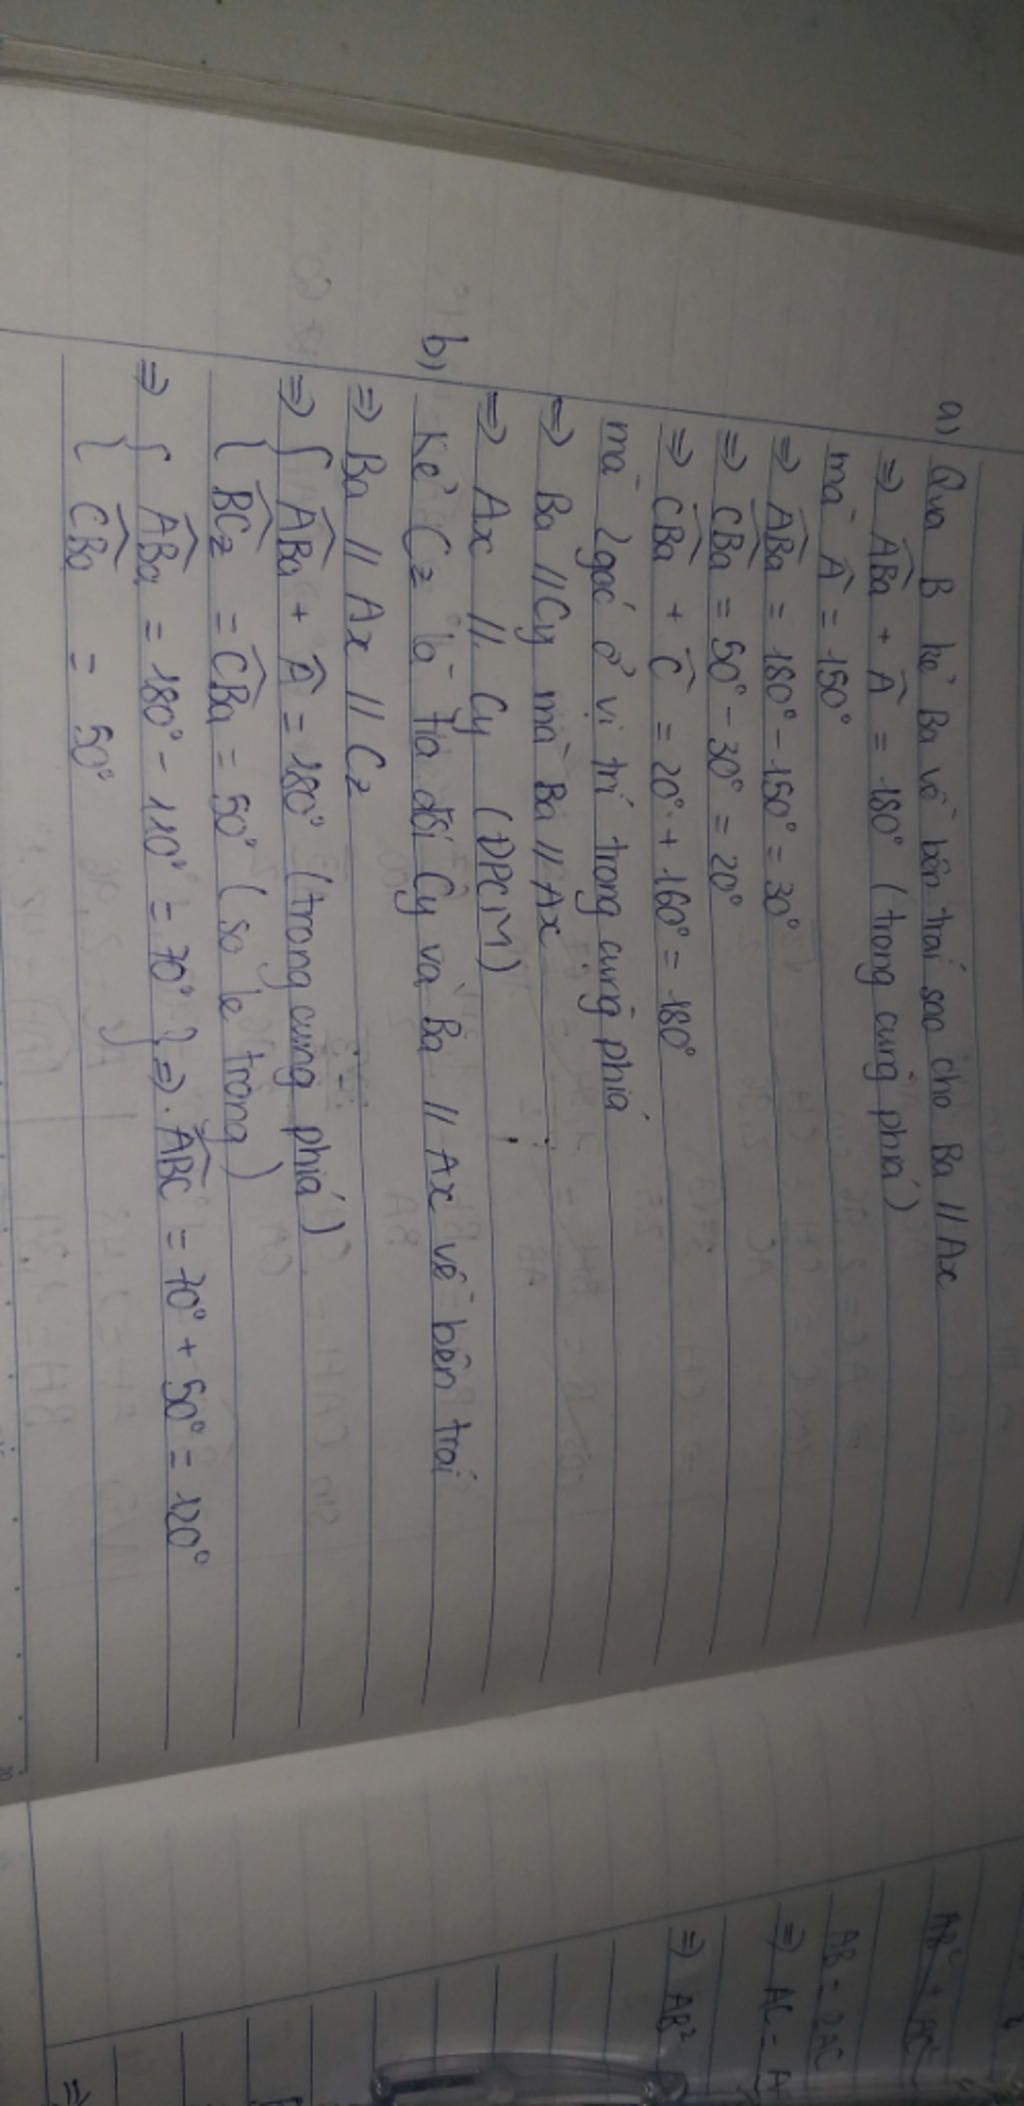 a) Qua B kẻ Ba về bên trái sao cho Ba // Ax
=> ABa + A = 180° (trong cùng phía)
mà A = 150°
=> ABa = 180° - 150° = 30°
=> CBa = 50° - 30° = 20°
=> CBa + C = 20° + 160° = 180°
mà 2 góc ở vị trí trong cùng phía
=> Ba // Cy mà Ba // Ax
=> Ax // Cy (ĐPCM)
b) Kẻ Cz là tia đối Cy và Ba // Ax về bên trái
=> Ba // Ax // Cz
=> { ABa + A = 180° (trong cùng phía)
{ BCz = CBa = 50° (so le trong)
=> { ABa = 180° - 110° = 70° } => ABC = 70° + 50° = 120°
{ CBa = 50°
AB² +
AB = 2AC
=> AC = A
=> AB²
=>